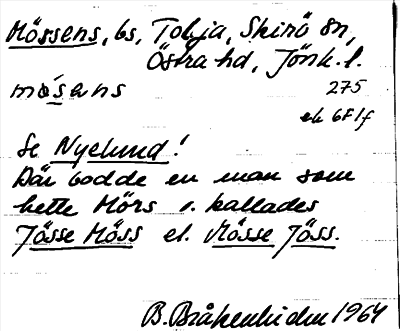 Mössens, bs, Tobja, Skirö sn,
Östra hd, Jönk. l.
mǿsəns 275
ek 6F1f
Se Nyelund!
Där bodde en man som
hette Mörs o. kallades
Jösse Möss el. Mösse Jöss.
B. Bråkenhielm 1964